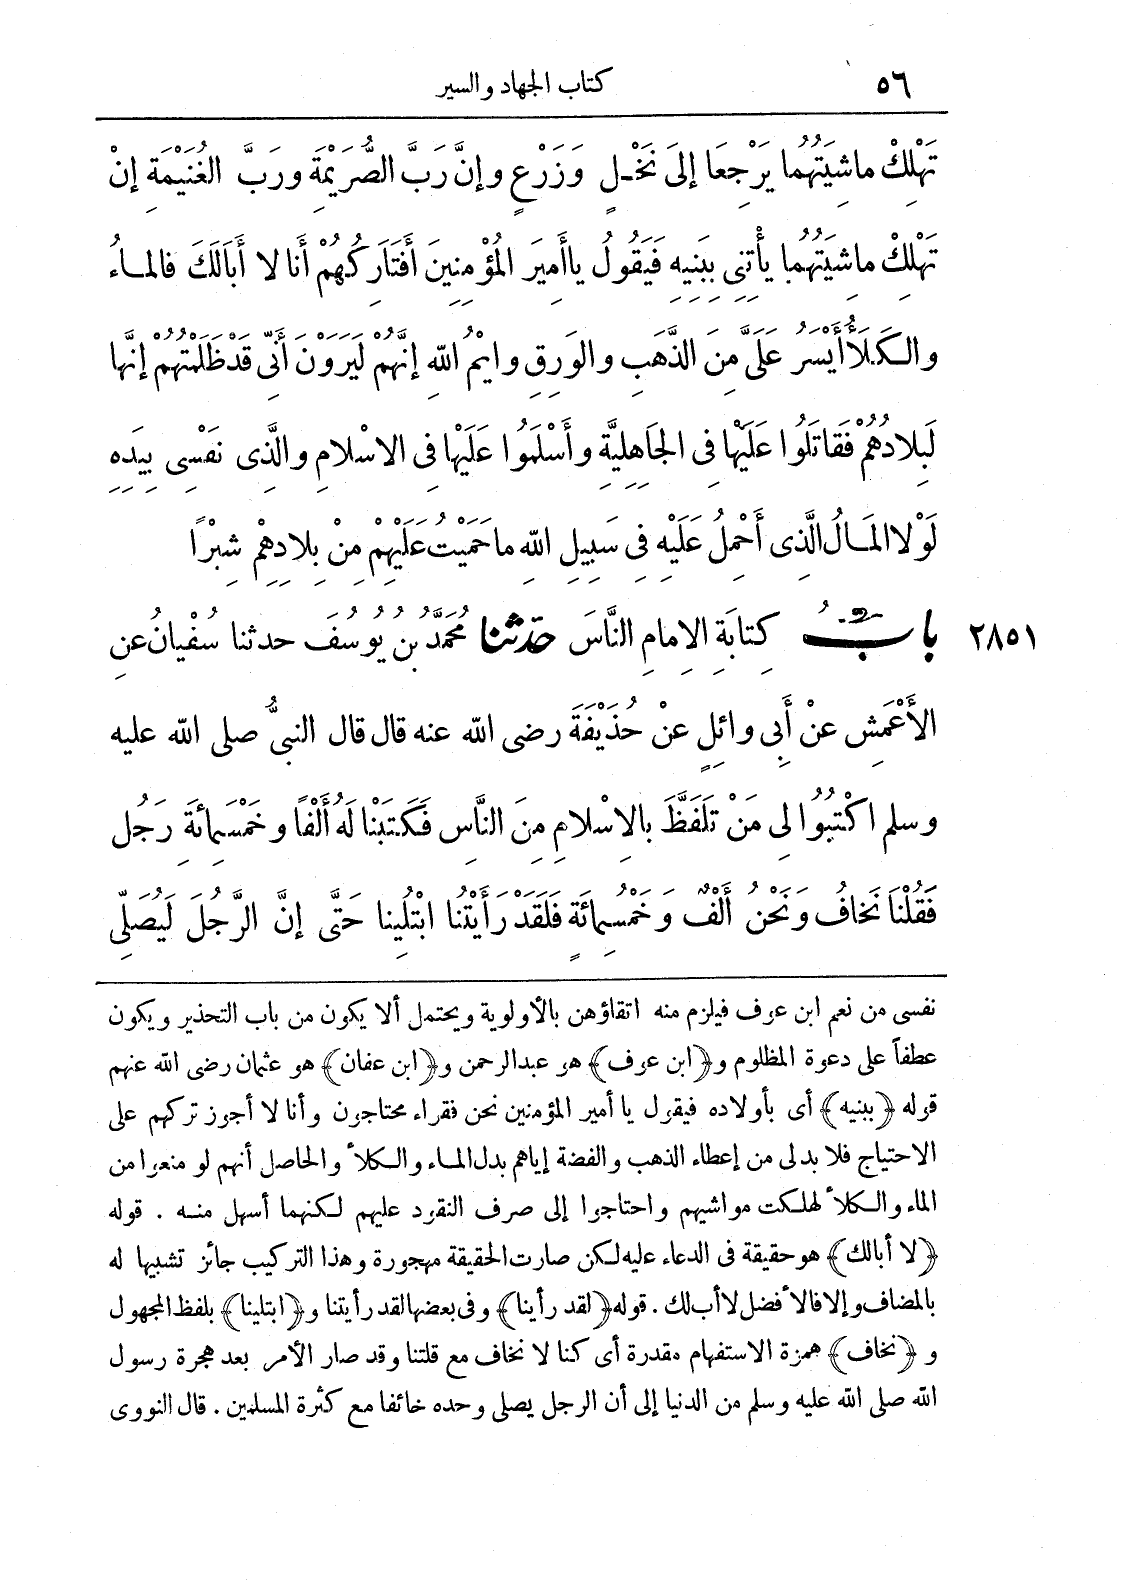 ٥٦ كتاب الجهاد والسير
تَهْلِكْ ماشِيَتُهُما يَرْجِعَا إلىَ نَخْلٍ وَزَرْعٍ وإنَّ رَبَّ الصُّرَيْمَةِ ورَبَّ الغُنَيْمَةِ إنْ
تَهْلِكْ ماشِيَتُهُما يأْتِنِى بِبَنِيهِ فَيَقُولُ ياأَمِيرَ المُؤْمِنِينَ أَفَتَارِكُهُمْ أَنا لا أَبَالَكَ فالمــاءُ
والــكَلَأُ أَيْسَرُ عَلَىَّ مِنَ الذَّهَبِ والوَرِقِ وايْمُ اللهِ إنَّهُمْ لَيَرَوْنَ أَنِّى قَدْ ظَلَمْتُهُمْ إنَّها
لَبِلادُهُمْ فَقاتَلُوا عَلَيْها فِى الجَاهِلِيَّةِ وأَسْلَمُوا عَلَيْها فِى الاسْلامِ والَّذِى نَفْسِى بِيَدِهِ
لَوْلا المَــالُ الَّذِى أَحْمِلُ عَلَيْهِ فِى سَبِيلِ اللهِ ماحَمَيْتُ عَلَيْهِمْ مِنْ بِلادِهِمْ شِبْرًا
٢٨٥١ بابُ كِتابَةِ الإِمامِ النَّاسَ حدثنا مُحَمَّدُ بنُ يُوسُفَ حدثنا سُفْيانُ عنِ
الأَعْمَشِ عنْ أَبِى وائِلٍ عنْ حُذَيْفَةَ رضى الله عنه قال قال النبىُّ صلى الله عليه
وسلم اكْتُبُوا لِى مَنْ تَلَفَّظَ بالإِسْلامِ مِنَ النَّاسِ فَكَتَبْنا لَهُ أَلْفًا وخَمْسَمِائَةَ رَجُلٍ
فَقُلْنا نَخافُ ونَحْنُ أَلْفٌ وَخَمْسُمِائَةٍ فَلَقَدْ رَأَيْتُنا ابْتُلِينا حَتَّى إنَّ الرَّجُلَ لَيُصَلِّى
نفسى من نعم ابن عوف فيلزم منه اتقاؤهن بالأولوية ويحتمل ألا يكون من باب التحذير ويكون
عطفاً على دعوة المظلوم و﴿ابن عوف﴾ هو عبدالرحمن و﴿ابن عفان﴾ هو عثمان رضى الله عنهم
قوله ﴿ببنيه﴾ أى بأولاده فيقول يا أمير المؤمنين نحن فقراء محتاجون وأنا لا أجوز تركهم على
الاحتياج فلا بد لى من إعطاء الذهب والفضة إياهم بدل المــاء والــكلأ والحاصل أنهم لو منعوا من
الماء والــكلأ لهلــكت مواشيهم واحتاجوا إلى صرف النقود عليهم لــكنهما أسهل منــه . قوله
﴿لا أبالك﴾ هو حقيقة فى الدعاء عليه لــكن صارت الحقيقة مهجورة وهذا التركيب جائز تشبيها له
بالمضاف وإلا فالأفضل لا أب لك . قوله ﴿لقد رأينا﴾ وفى بعضها لقد رأيتنا و﴿ابتلينا﴾ بلفظ المجهول
و ﴿نخاف﴾ همزة الاستفهام مقدرة أى كنا لا نخاف مع قلتنا وقد صار الأمر بعد هجرة رسول
الله صلى الله عليه وسلم من الدنيا إلى أن الرجل يصلى وحده خائفا مع كثرة المسلمين . قال النووى